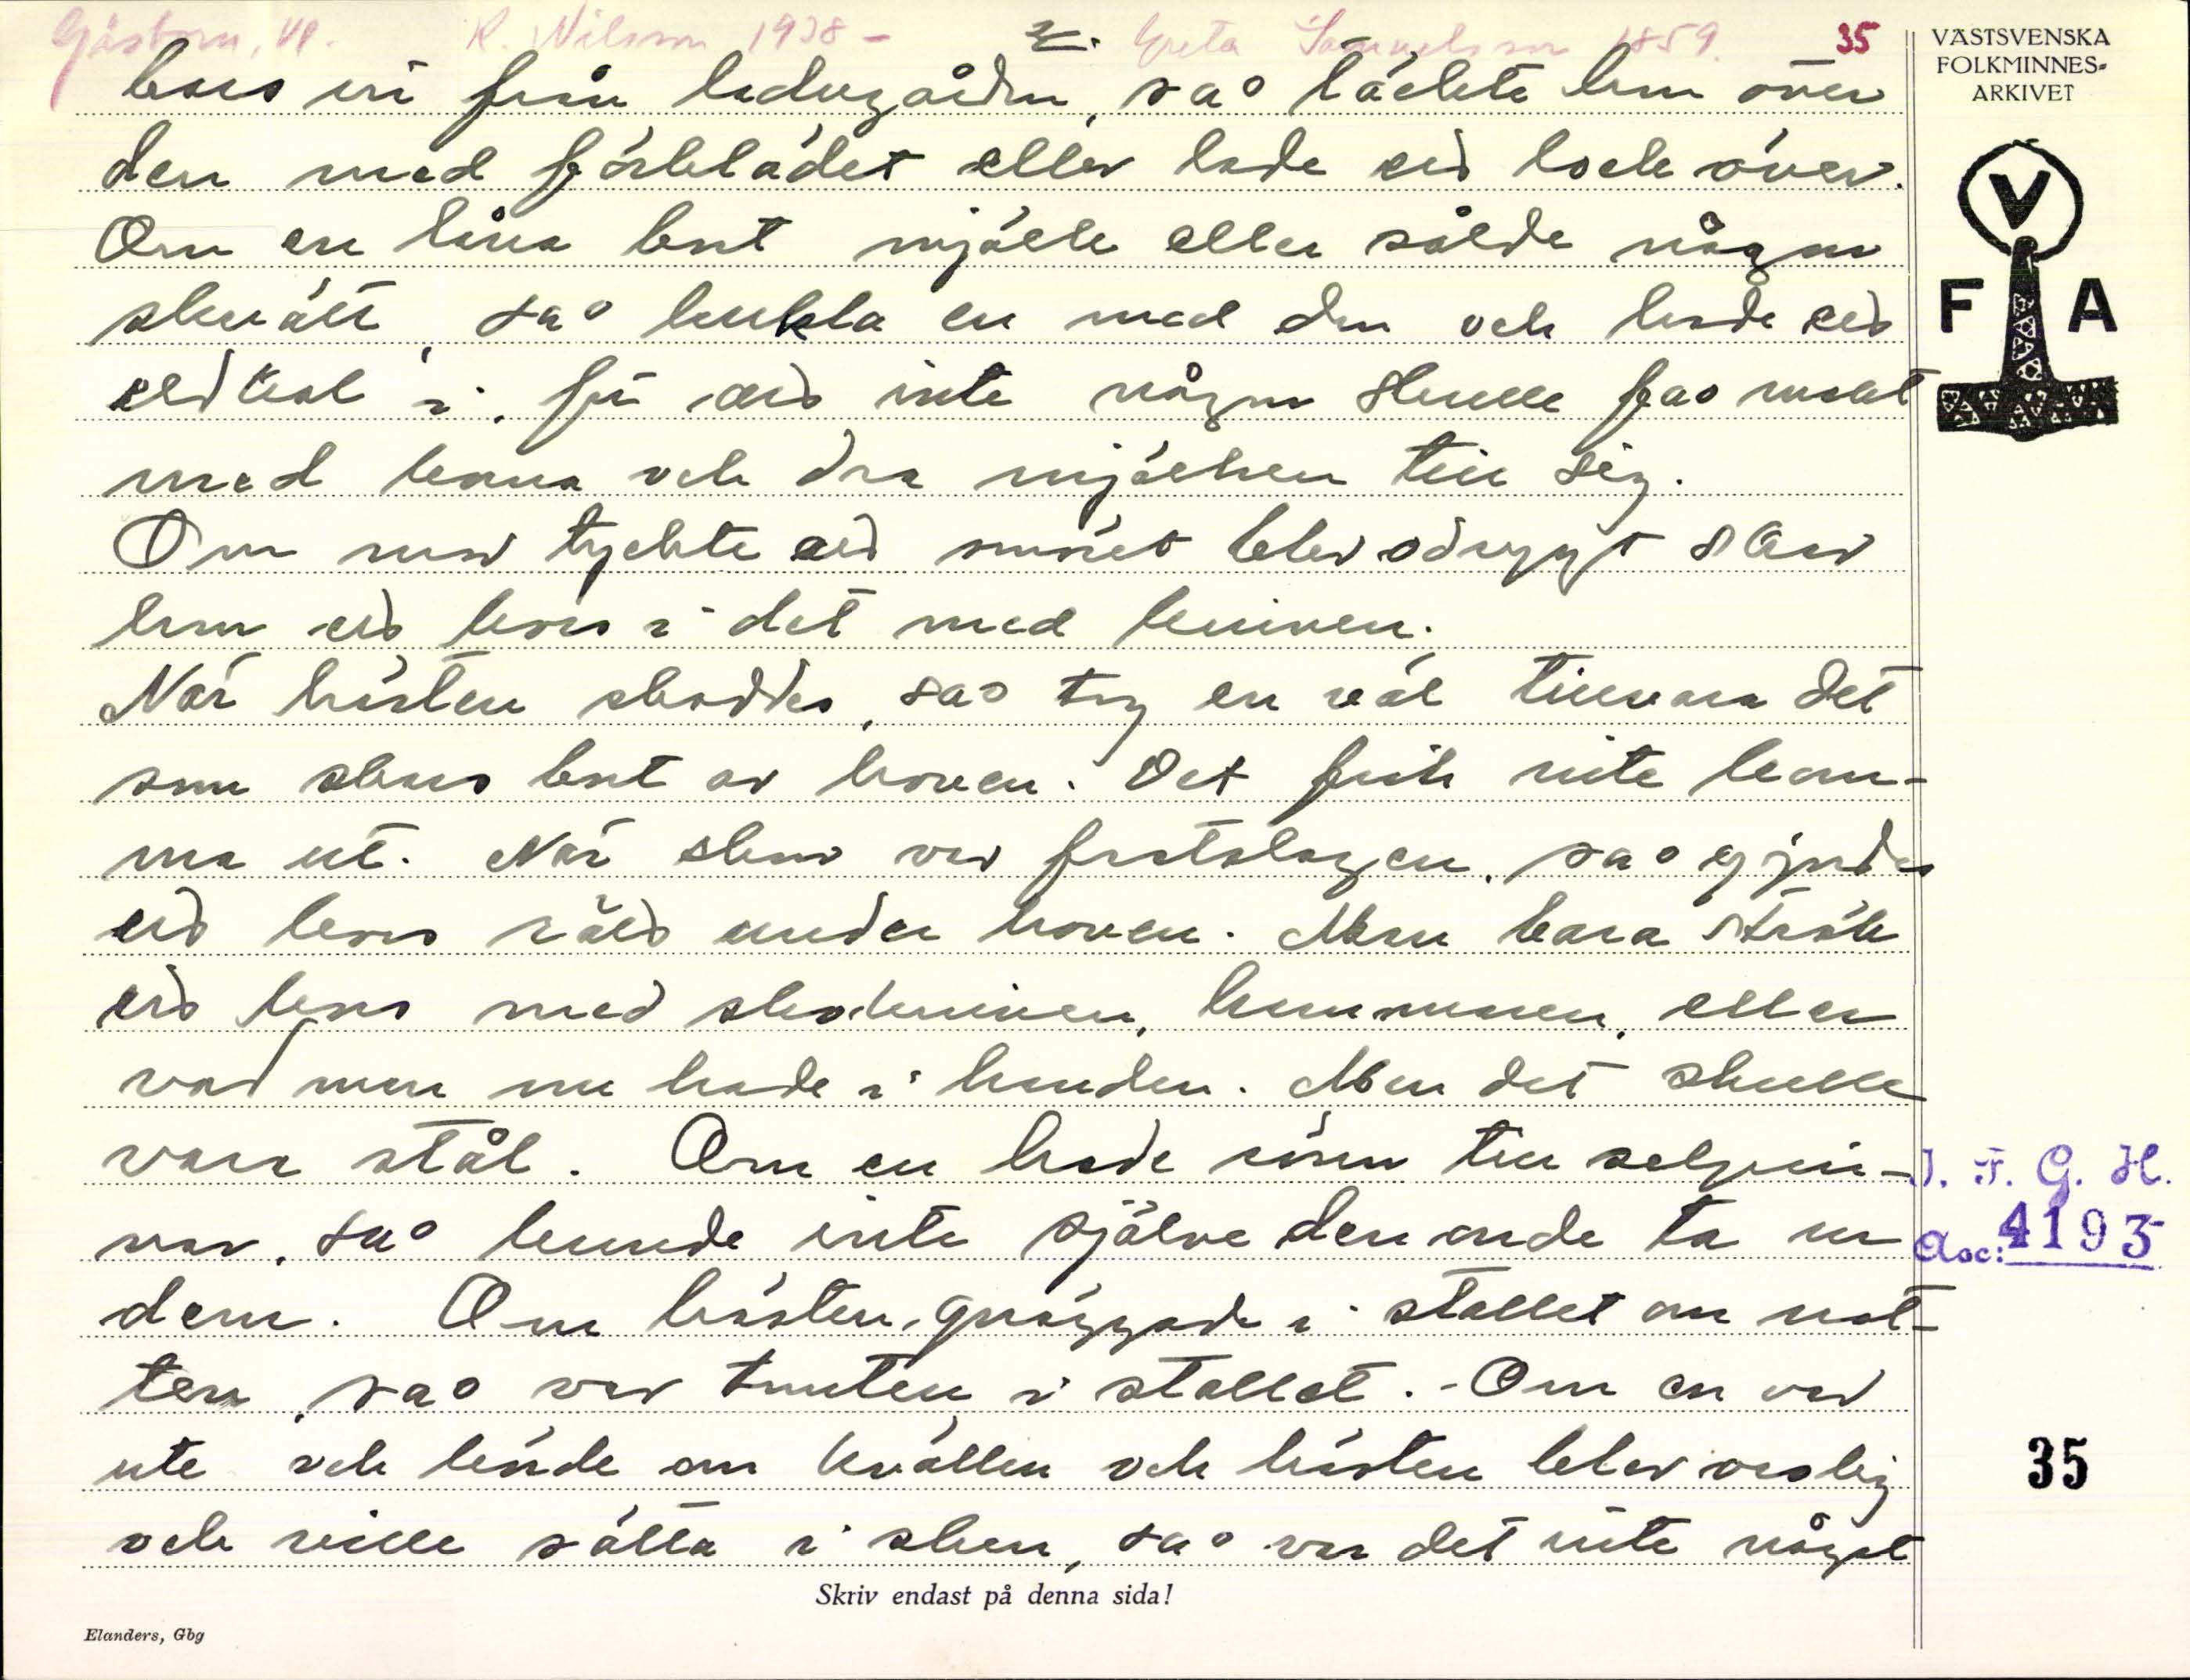 Gåsborn, Vl. K. Nilsson 1938 - 2. Greta Samuelsson 1859. 35
bars in från ladugården, sao täckte hon över
den med förklädet eller lade ett lock över.
Om en låna bort mjölk eller sålde någon
skvätt, sao kukla en med den och lade ett
eldkol i, för att inte någon skulle fao makt
med korna och dra mjölken till sig.
Om mor tyckte att smöret blev odrygt skar
hon ett kors i det med kniven.
När hästen skoddes, sao tog en väl tillvara det
som skars bort av hoven. Det fick inte kom-
ma ut. När skon var fastslagen, sao gjordes
ett kors räls under hoven. Man bara strök
ett kors med skokniven, hammaren, eller
vad man nu hade i handen. Men det skulle
vara stål. Om en hade rönn till selpin-
nar, sao kunde inte själve den onde ta ur
dem. Om hästen gnäggade i stallet om nat-
ten, sao var tomten i stallet. - Om en var
ute och körde om kvällen och hästen blev orolig
och ville sätta i sken, sao var det inte något
Skriv endast på denna sida!
Elanders, Gbg
VÄSTSVENSKA
FOLKMINNES-
ARKIVET
V
F A
I. F. G. H.
Acc: 4193
35